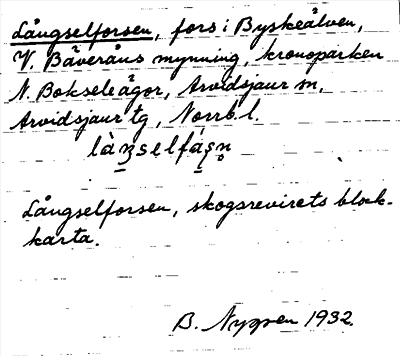 Långselforsen, fors i Byskeälven,
V. Bäveråns mynning, kronoparken
N. Bokseleågor, Arvidsjaur sn,
Arvidsjaur tg, Norrb. l.
Långselforsen, skogsrevirets block-
karta.
B. Nygren 1932.